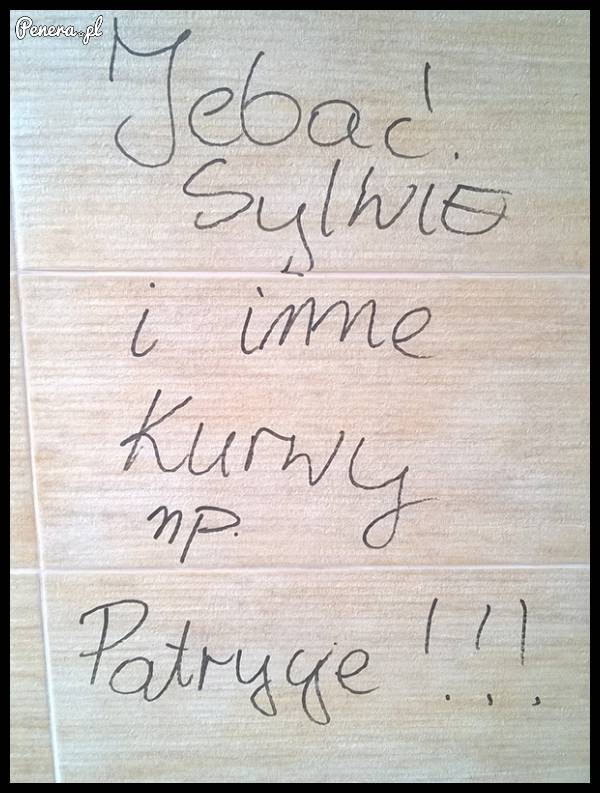 Penera.pl
Jebać.
Sylwie
i inne
Kurwy
np.
Patrycje!!!